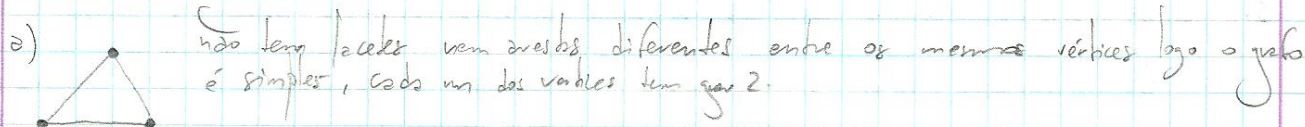 a) não tem lacetes nem arestas diferentes entre os mesmos vértices logo o grafo
é simples, cada um dos vértices tem grau 2.